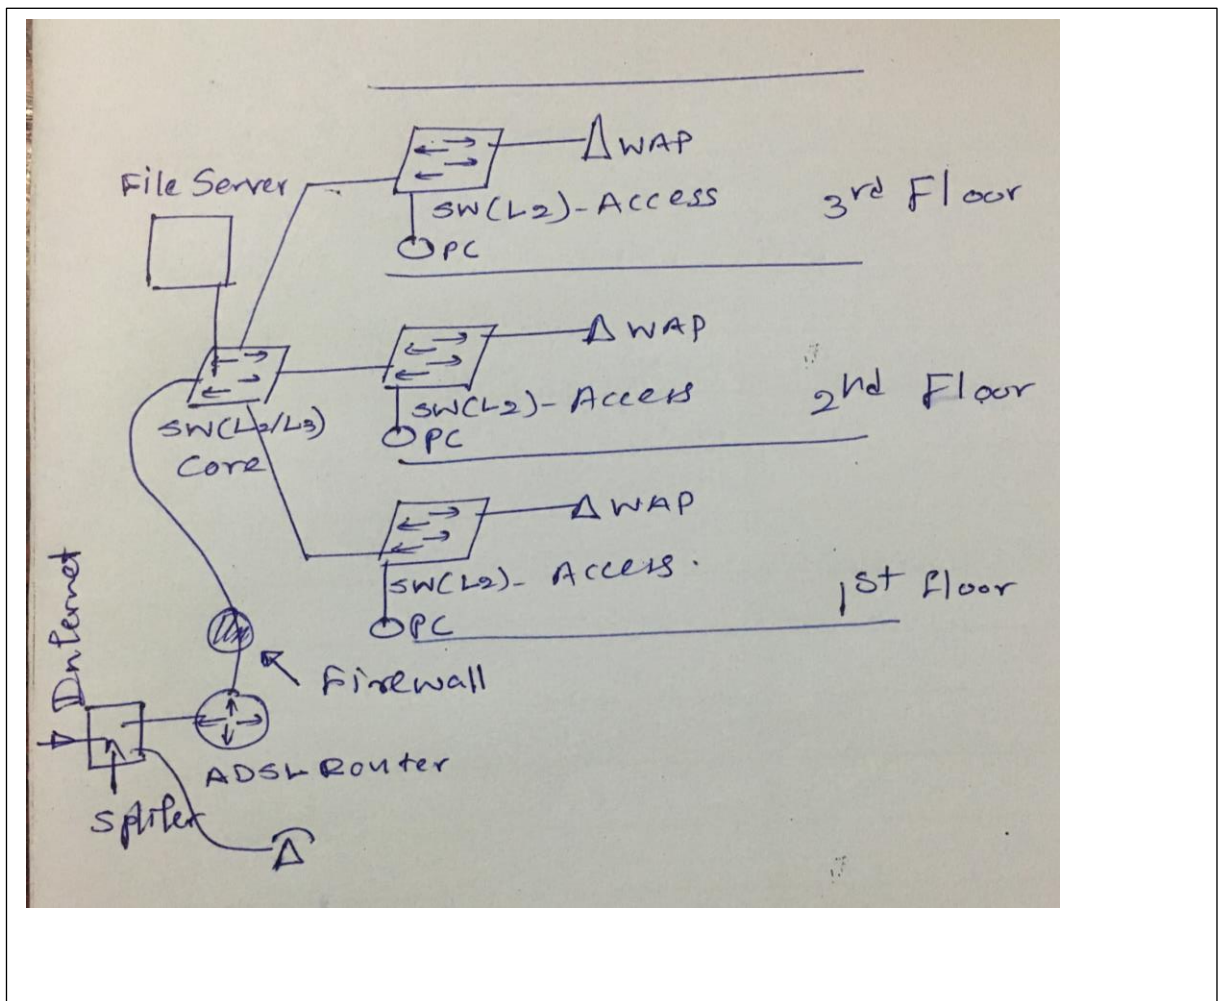 WAP
File Server
SW(L2)-Access
3rd Floor
PC
WAP
SW(L2)-Access
2nd Floor
SW(L2/L3)
Core
PC
WAP
SW(L2)- Access.
1st Floor
PC
Internet
Firewall
ADSL Router
Spliter